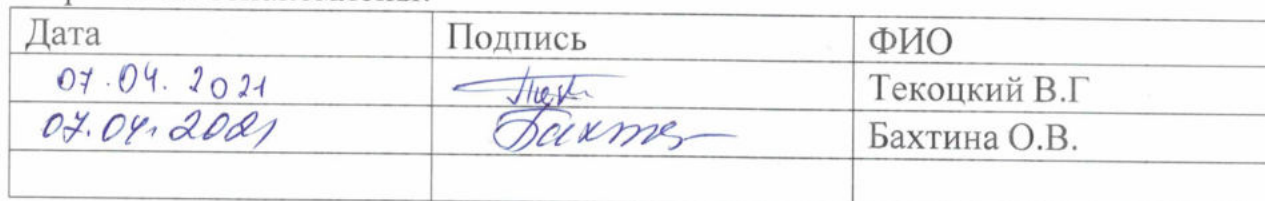 Дата Подпись ФИО
07.04.2021 Текоцкий В.Г
07.04.2021 Бахтина О.В.